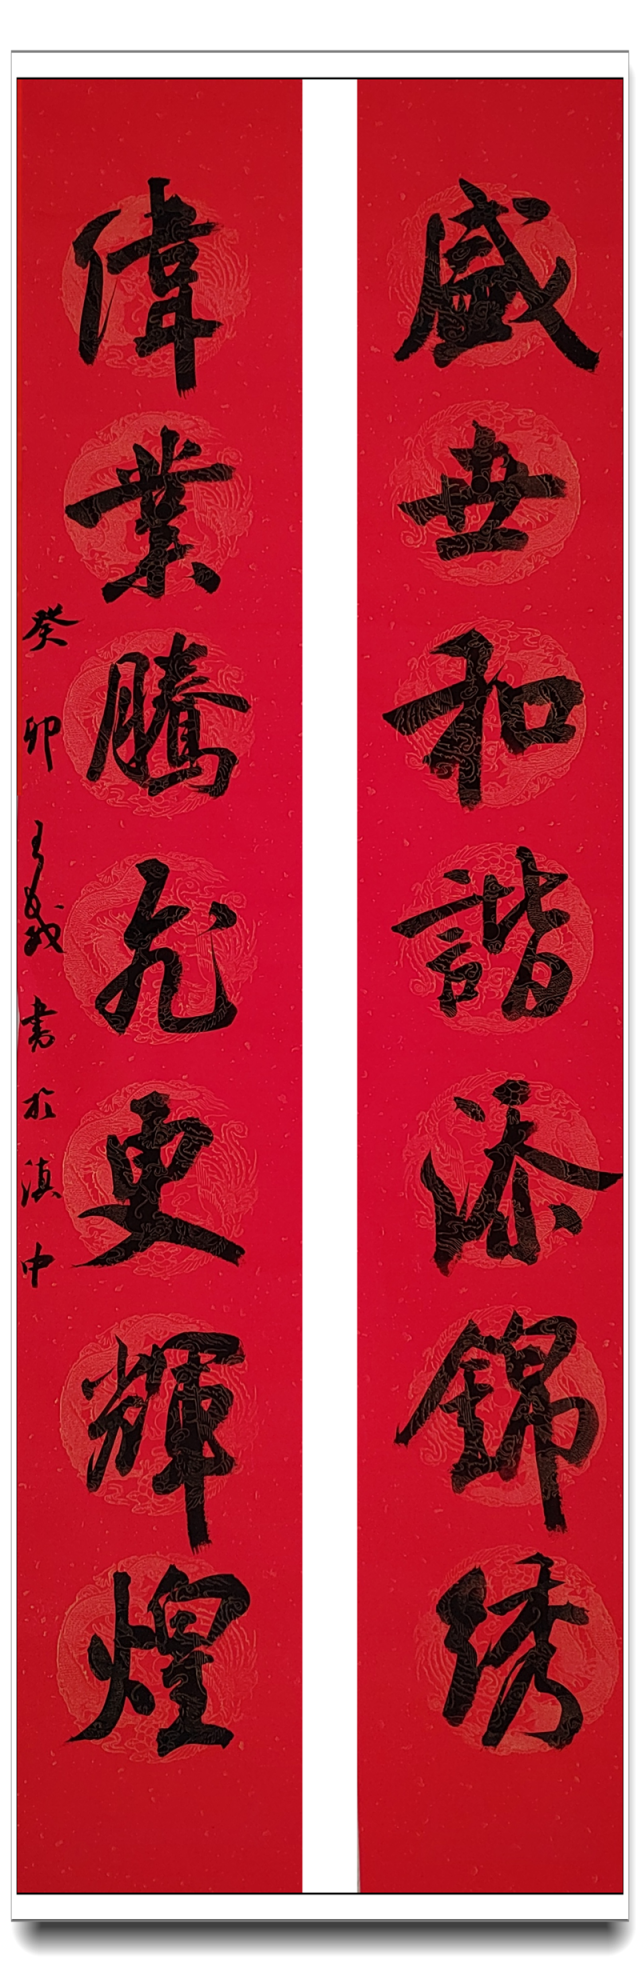 盛世和諧添錦绣
偉業騰飛更輝煌
癸卯王義書於滇中